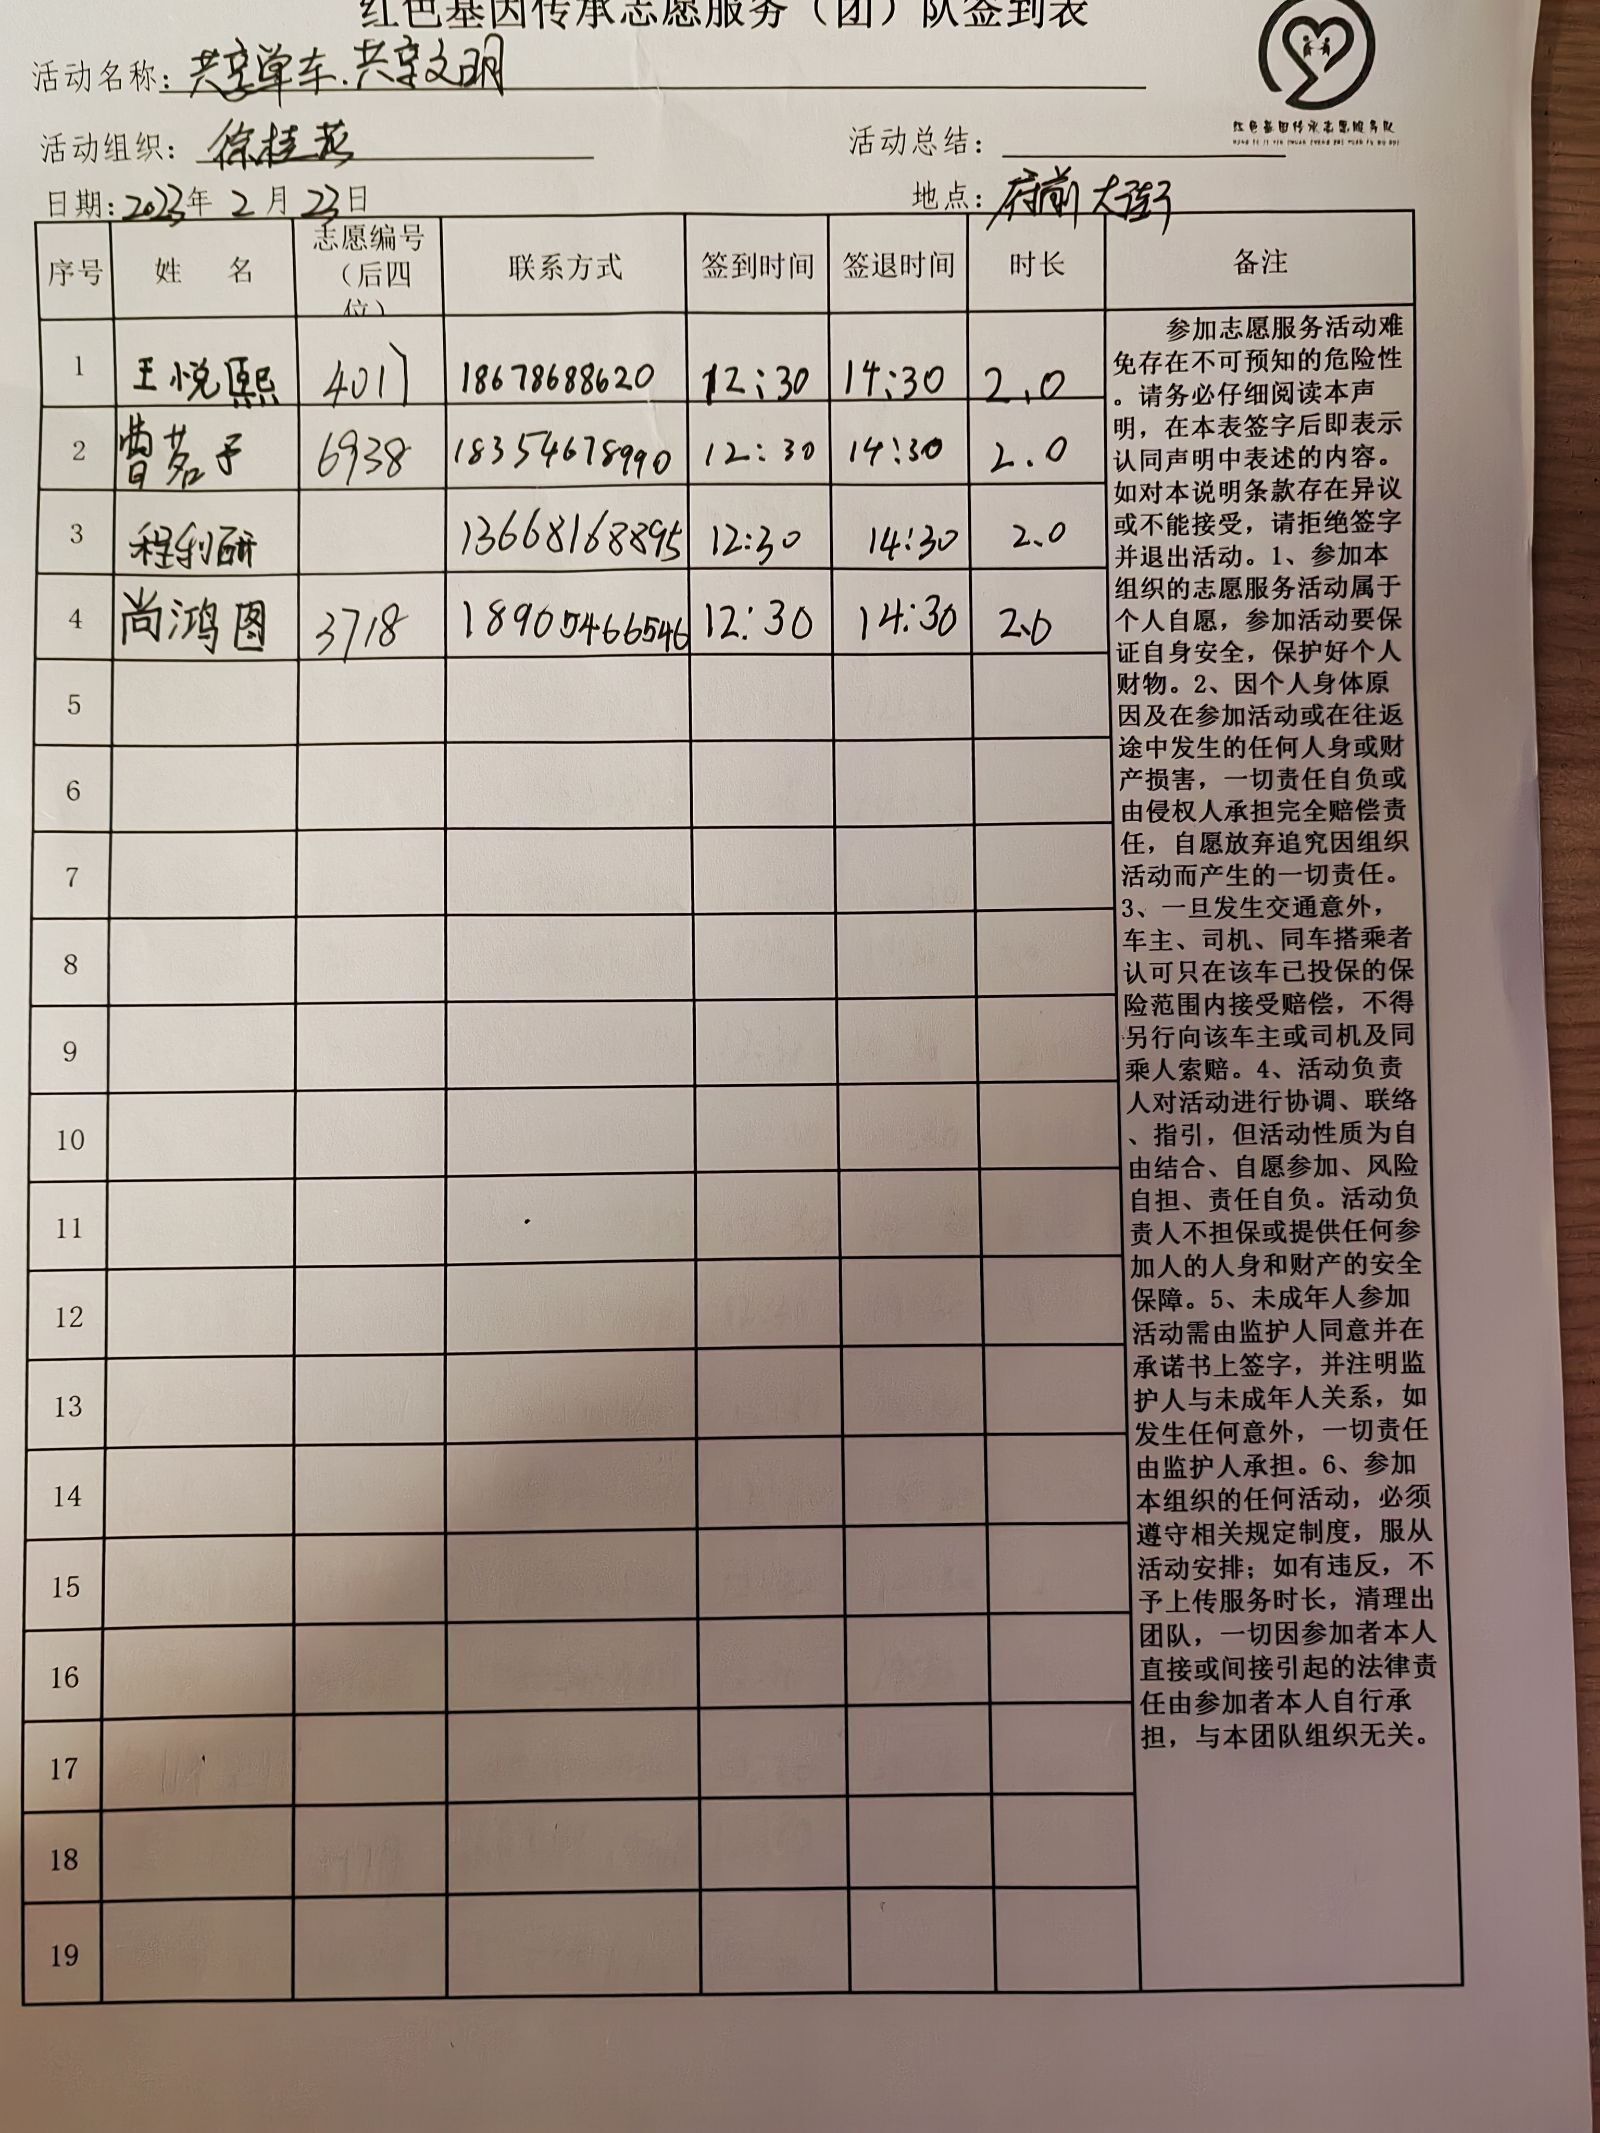 红色基因传承志愿服务（团）队签到表
红色基因传承志愿服务队
活动名称：共享单车.共享文明
活动组织：徐桂芬 活动总结：
日期：2023年 2月 23日 地点：府前大街
序号 姓 名 志愿编号（后四位） 联系方式 签到时间 签退时间 时长 备注
1 王悦熙 4017 18678688620 12:30 14:30 2.0
2 曹茗予 6938 18354678990 12:30 14:30 2.0
3 程利研 13668168895 12:30 14:30 2.0
4 尚鸿图 3718 18905466546 12:30 14:30 2.0
5
6
7
8
9
10
11
12
13
14
15
16
17
18
19
参加志愿服务活动难
免存在不可预知的危险性
。请务必仔细阅读本声
明，在本表签字后即表示
认同声明中表述的内容。
如对本说明条款存在异议
或不能接受，请拒绝签字
并退出活动。1、参加本
组织的志愿服务活动属于
个人自愿，参加活动要保
证自身安全，保护好个人
财物。2、因个人身体原
因及在参加活动或在往返
途中发生的任何人身或财
产损害，一切责任自负或
由侵权人承担完全赔偿责
任，自愿放弃追究因组织
活动而产生的一切责任。
3、一旦发生交通意外，
车主、司机、同车搭乘者
认可只在该车已投保的保
险范围内接受赔偿，不得
另行向该车主或司机及同
乘人索赔。4、活动负责
人对活动进行协调、联络
、指引，但活动性质为自
由结合、自愿参加、风险
自担、责任自负。活动负
责人不担保或提供任何参
加人的人身和财产的安全
保障。5、未成年人参加
活动需由监护人同意并在
承诺书上签字，并注明监
护人与未成年人关系，如
发生任何意外，一切责任
由监护人承担。6、参加
本组织的任何活动，必须
遵守相关规定制度，服从
活动安排；如有违反，不
予上传服务时长，清理出
团队，一切因参加者本人
直接或间接引起的法律责
任由参加者本人自行承
担，与本团队组织无关。